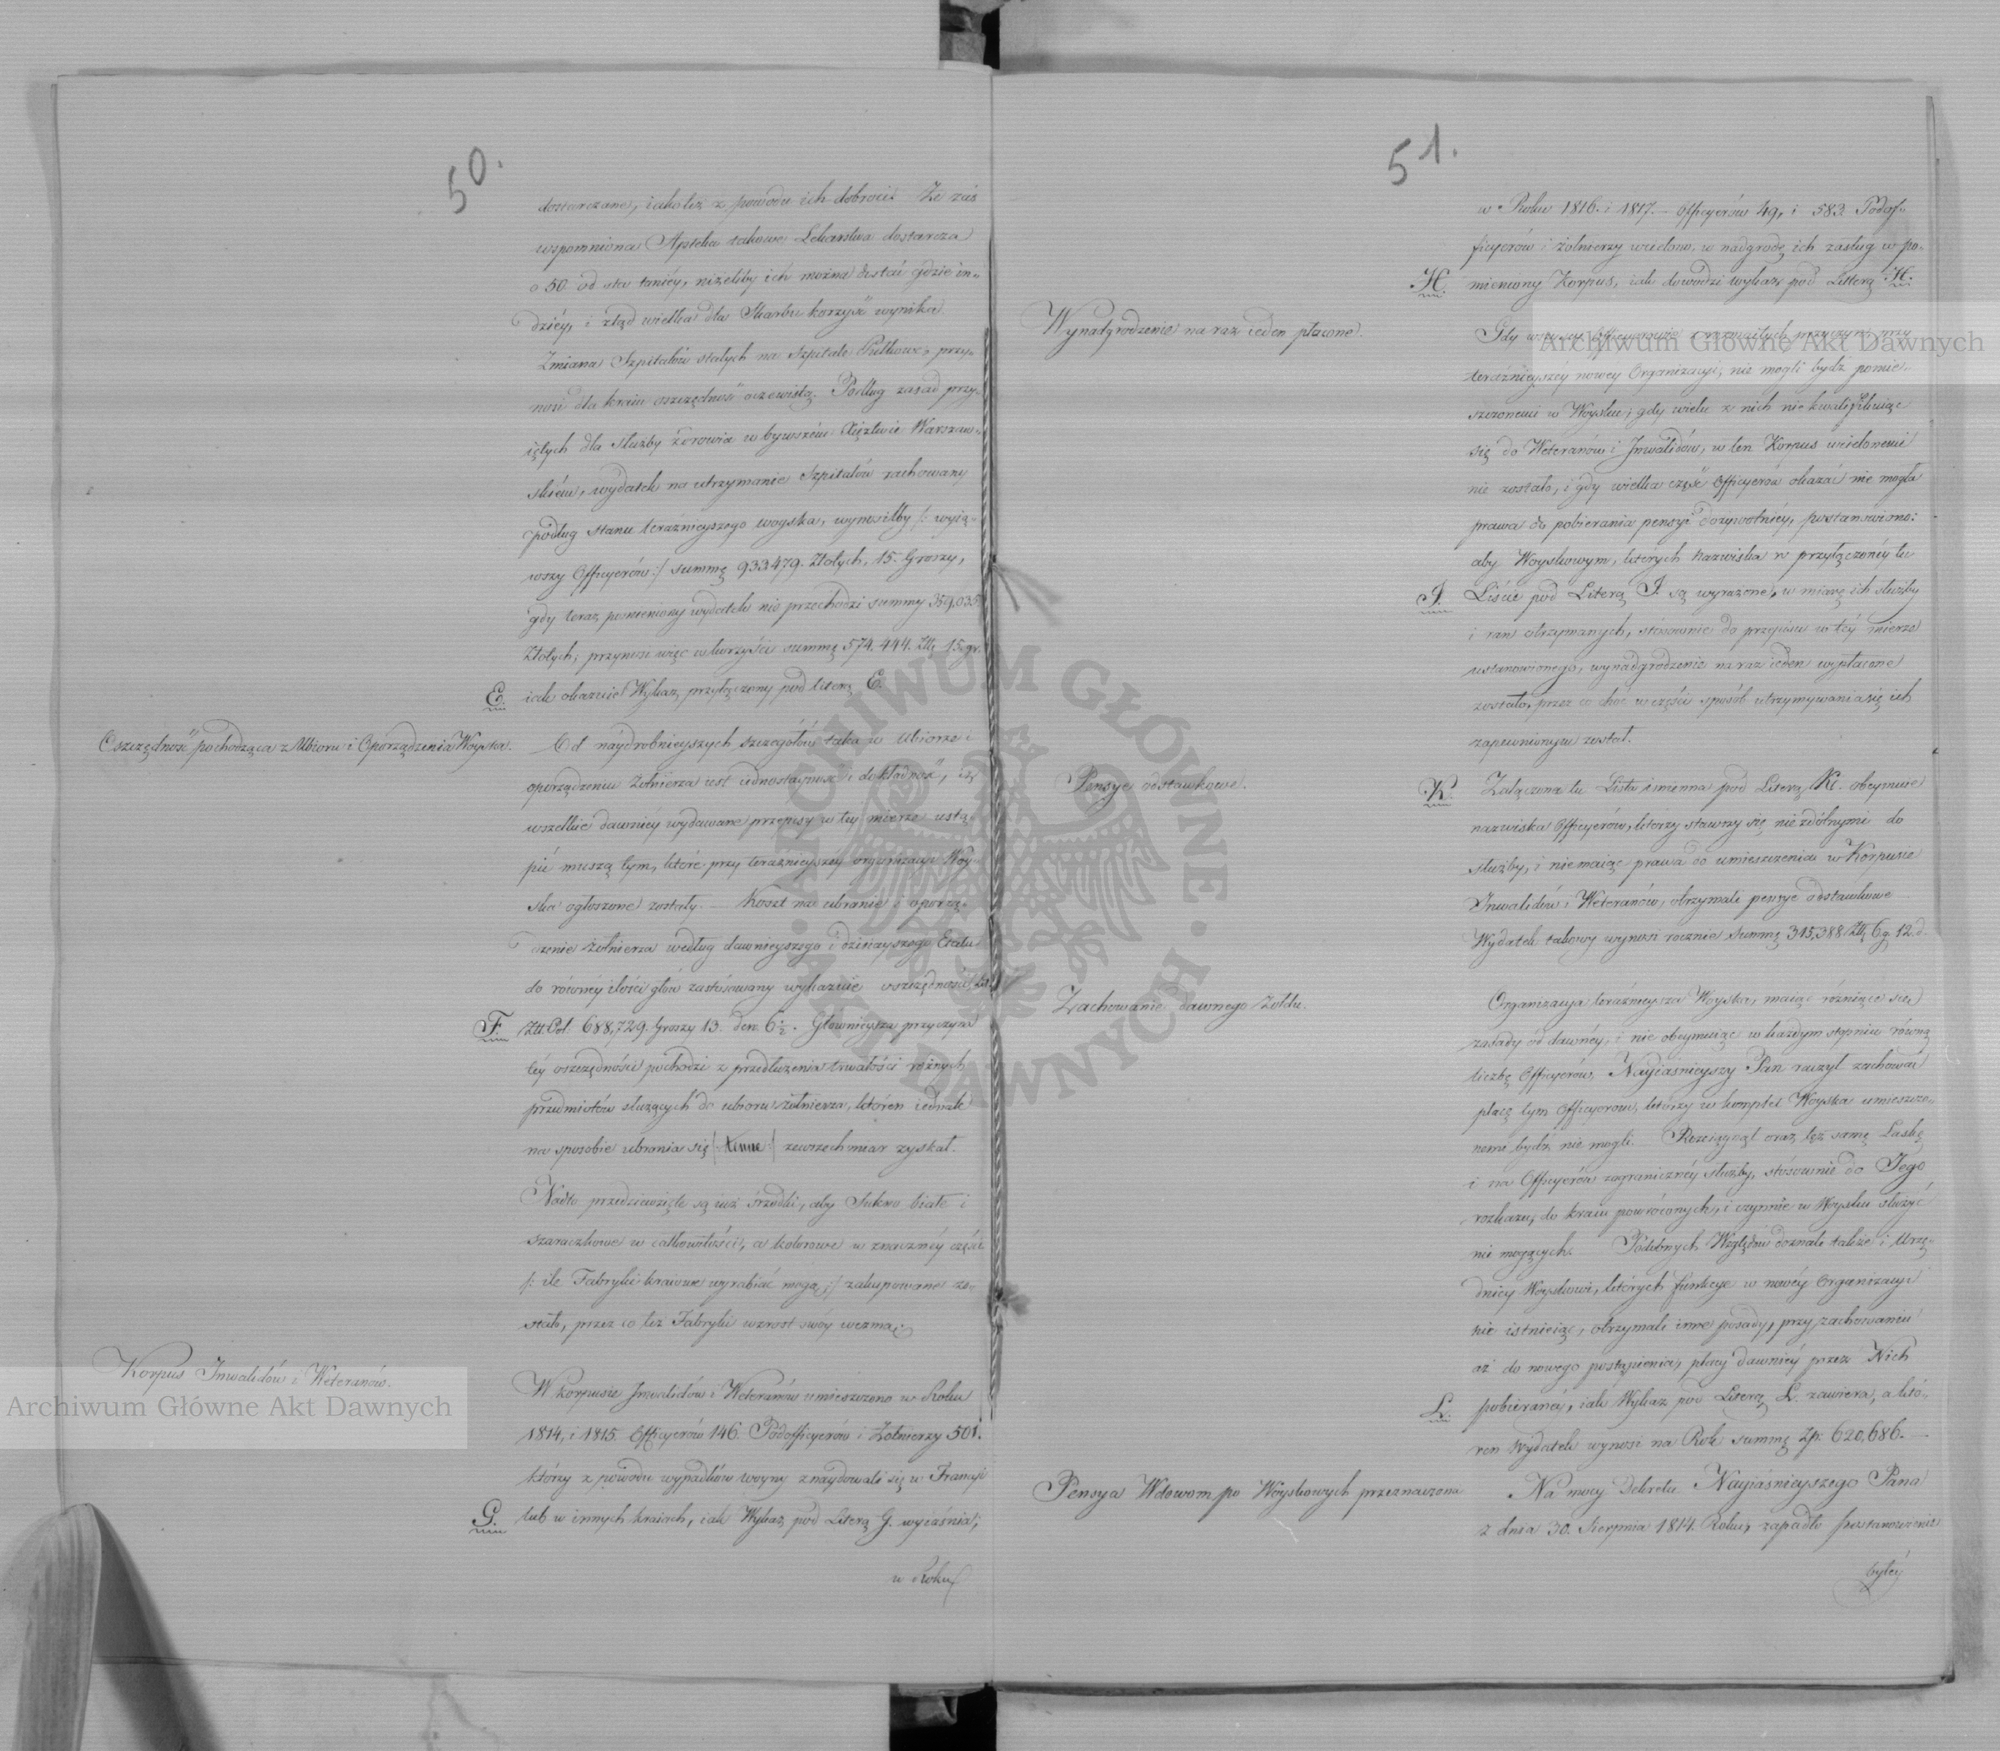 50.
dostarczane, iako też z powodu ich dobroci. Że zaś
wspomniona Apteka takowe Lekarstwa dostarcza
o 50 od sta taniéy, niżeliby ich można dostać gdzie in-
dziéy, i ztąd wielka dla Skarbu korzyść wynika.
Zmiana Szpitalów stałych na Szpitale Pułkowe, przy-
nosi dla kraiu oszczędność oczewistą. Podług zasad przy-
iętych dla służby zdrowia w bywszém Xięztwie Warszaw-
skiém, wydatek na utrzymanie Szpitalów rachowany
podług stanu teraźnieyszego woyska, wynosiłby /: wyią-
wszy Officyerów :/ summę 933.479. Złotych, 15. Groszy,
gdy teraz pomieniony wydatek nie przechodzi summy 359,035
Złotych, przynosi więc w korzyści summę 574.444. Złł. 15. gr.
E. iak okazuie Wykaz przyłączony pod literą E.
Oszczędność pochodząca z Ubioru i Oporządzenia Woyska.
Od náydrobnieyszych szczegółów taka w Ubiorze i
oporządzeniu Żołnierza iest iednostayność i dokładność, iż
wszelkie dawniéy wydawane przepisy w téy mierze ustą-
pić muszą tym, które przy teraźnieyszéy organizacyi Woy-
ska ogłoszone zostały. — Koszt na ubranie i oporzą-
dzenie żołnierza według dawnieyszego i dzisieyszego Etatu
do równéy ilości głów zastósowany wykazuie oszczędności
F. Złł. Pol. 688,729. Groszy 13. den. 6½. Głównieysza przyczyna
téy oszczędności pochodzi z przedłużenia trwałości różnych
przedmiotów służących do ubioru żołnierza, którén iednak
na sposobie ubrania się /: tenue :/ zewszech miar zyskał.
Nadto przedsięwzięte są iuż środki, aby Sukno białe i
szaraczkowe w całkowitości, a kolorowe w znacznéy części
/: ile Fabryki kraiowe wyrabiać mogą :/ zakupowane zo-
stało, przez co też Fabryki wzrost swóy wezmą.
Korpus Inwalidów i Weteranów.
W korpusie Inwalidów i Weteranów umieszczono w Roku
1814, i 1815. Officyerów 146. Podofficyerów i Żołnierzy 501.
którzy z powodu wypadków woyny znaydowali się w Francyi
G. lub w innych kraiach, iak Wykaz pod Literą G. wyiaśnia;
w Roku
51.
w Roku 1816. i 1817. — Officyerów 49, i 583. Podof-
ficyerów i żołnierzy wcielono, w nadgrodę ich zasług w po-
H. mieniony Korpus, iak dowodzi wykaz pod Literą H.
Wynadgrodzenie na raz ieden płacone.
Gdy wszyscy Officyerowie z rozmaitych przyczyn przy
teraźnieyszéy nowéy Organizacyi, nie mogli bydź pomie-
szczonemi w Woysku; gdy wielu z nich nie kwalifikuiąc
się do Weteranów i Inwalidów, w ten Korpus wcielonemi
nie zostało, i gdy wielka część Officyerów okazać nie mogła
prawa do pobierania pensyi dożywotniéy, postanowiono:
aby Woyskowym, których nazwiska w przyłączonéy tu
I. Liście pod Literą I są wyrażone, w miarę ich służby
i ran otrzymanych, stósownie do przepisu w téy mierze
ustanowionego, wynadgrodzenie na raz ieden wypłacone
zostało, przez co choć w części sposób utrzymywania się ich
zapewnionym został.
Pensye odstawkowe.
K. Załączona tu Lista imienna pod Literą K. obeymuie
nazwiska Officyerów, którzy stawszy się niezdólnymi do
służby, i nie maiąc prawa do umieszczenia w Korpusie
Inwalidów i Weteranów, otrzymali pensye odstawkowe
Wydatek takowy wynosi rocznie Summę 315,388 Złł. 6 g. 12. d.
Zachowanie dawnego Żołdu.
Organizacya teraźnieysza Woyska, maiąc różniące się
zasady od dawnéy, i nie obeymuiąc w każdym stopniu równą
liczbę Officyerów, Nayiaśnieyszy Pan raczył zachować
płacę tym Officyerom, którzy w komplet Woyska umieszczo-
nemi bydź nie mogli. Rozciągnął oraz tęż samę Łaskę
i na Officyerów zagranicznéy służby, stósownie do Jego
rozkazu, do kraiu powróconych, i czynnie w Woysku służyć
nie mogących. Podobnych Względów doznali także i Urzę-
dnicy Woyskowi, których funkcye w nowéy Organizacyi
nie istnieiąc, otrzymali inne posady, przy zachowaniu
aż do nowego postąpienia, płacy dawniéy przez Nich
L. pobieranéy, iak Wykaz pod Literą L. zawiera, a któ-
ren Wydatek wynosi na Rok summę Zp. 620,686. —
Pensya Wdowom po Woyskowych przeznaczona
Na mocy Dekretu Nayiaśnieyszego Pana
z dnia 30. Sierpnia 1814. Roku, zapadło postanowienie
byłéy
Archiwum Główne Akt Dawnych
Archiwum Główne Akt Dawnych
ARCHIWUM GŁÓWNE · AKT DAWNYCH ·